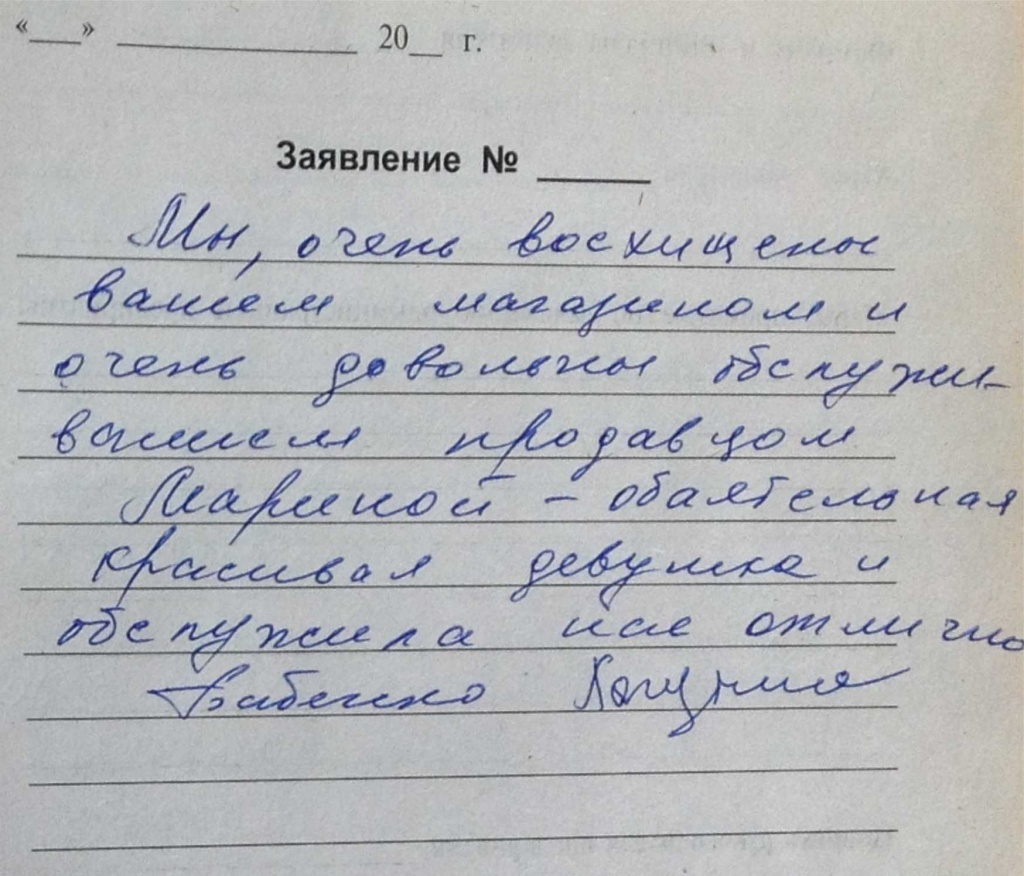 «___» ____________ 20__ г.
Заявление № ______
Мы, очень восхищены
вашем магазином и
очень довольны обслужи-
ванием продавцом
Мариной - обаятельная
красивая девушка и
обслужила нас отлично
Бабенко